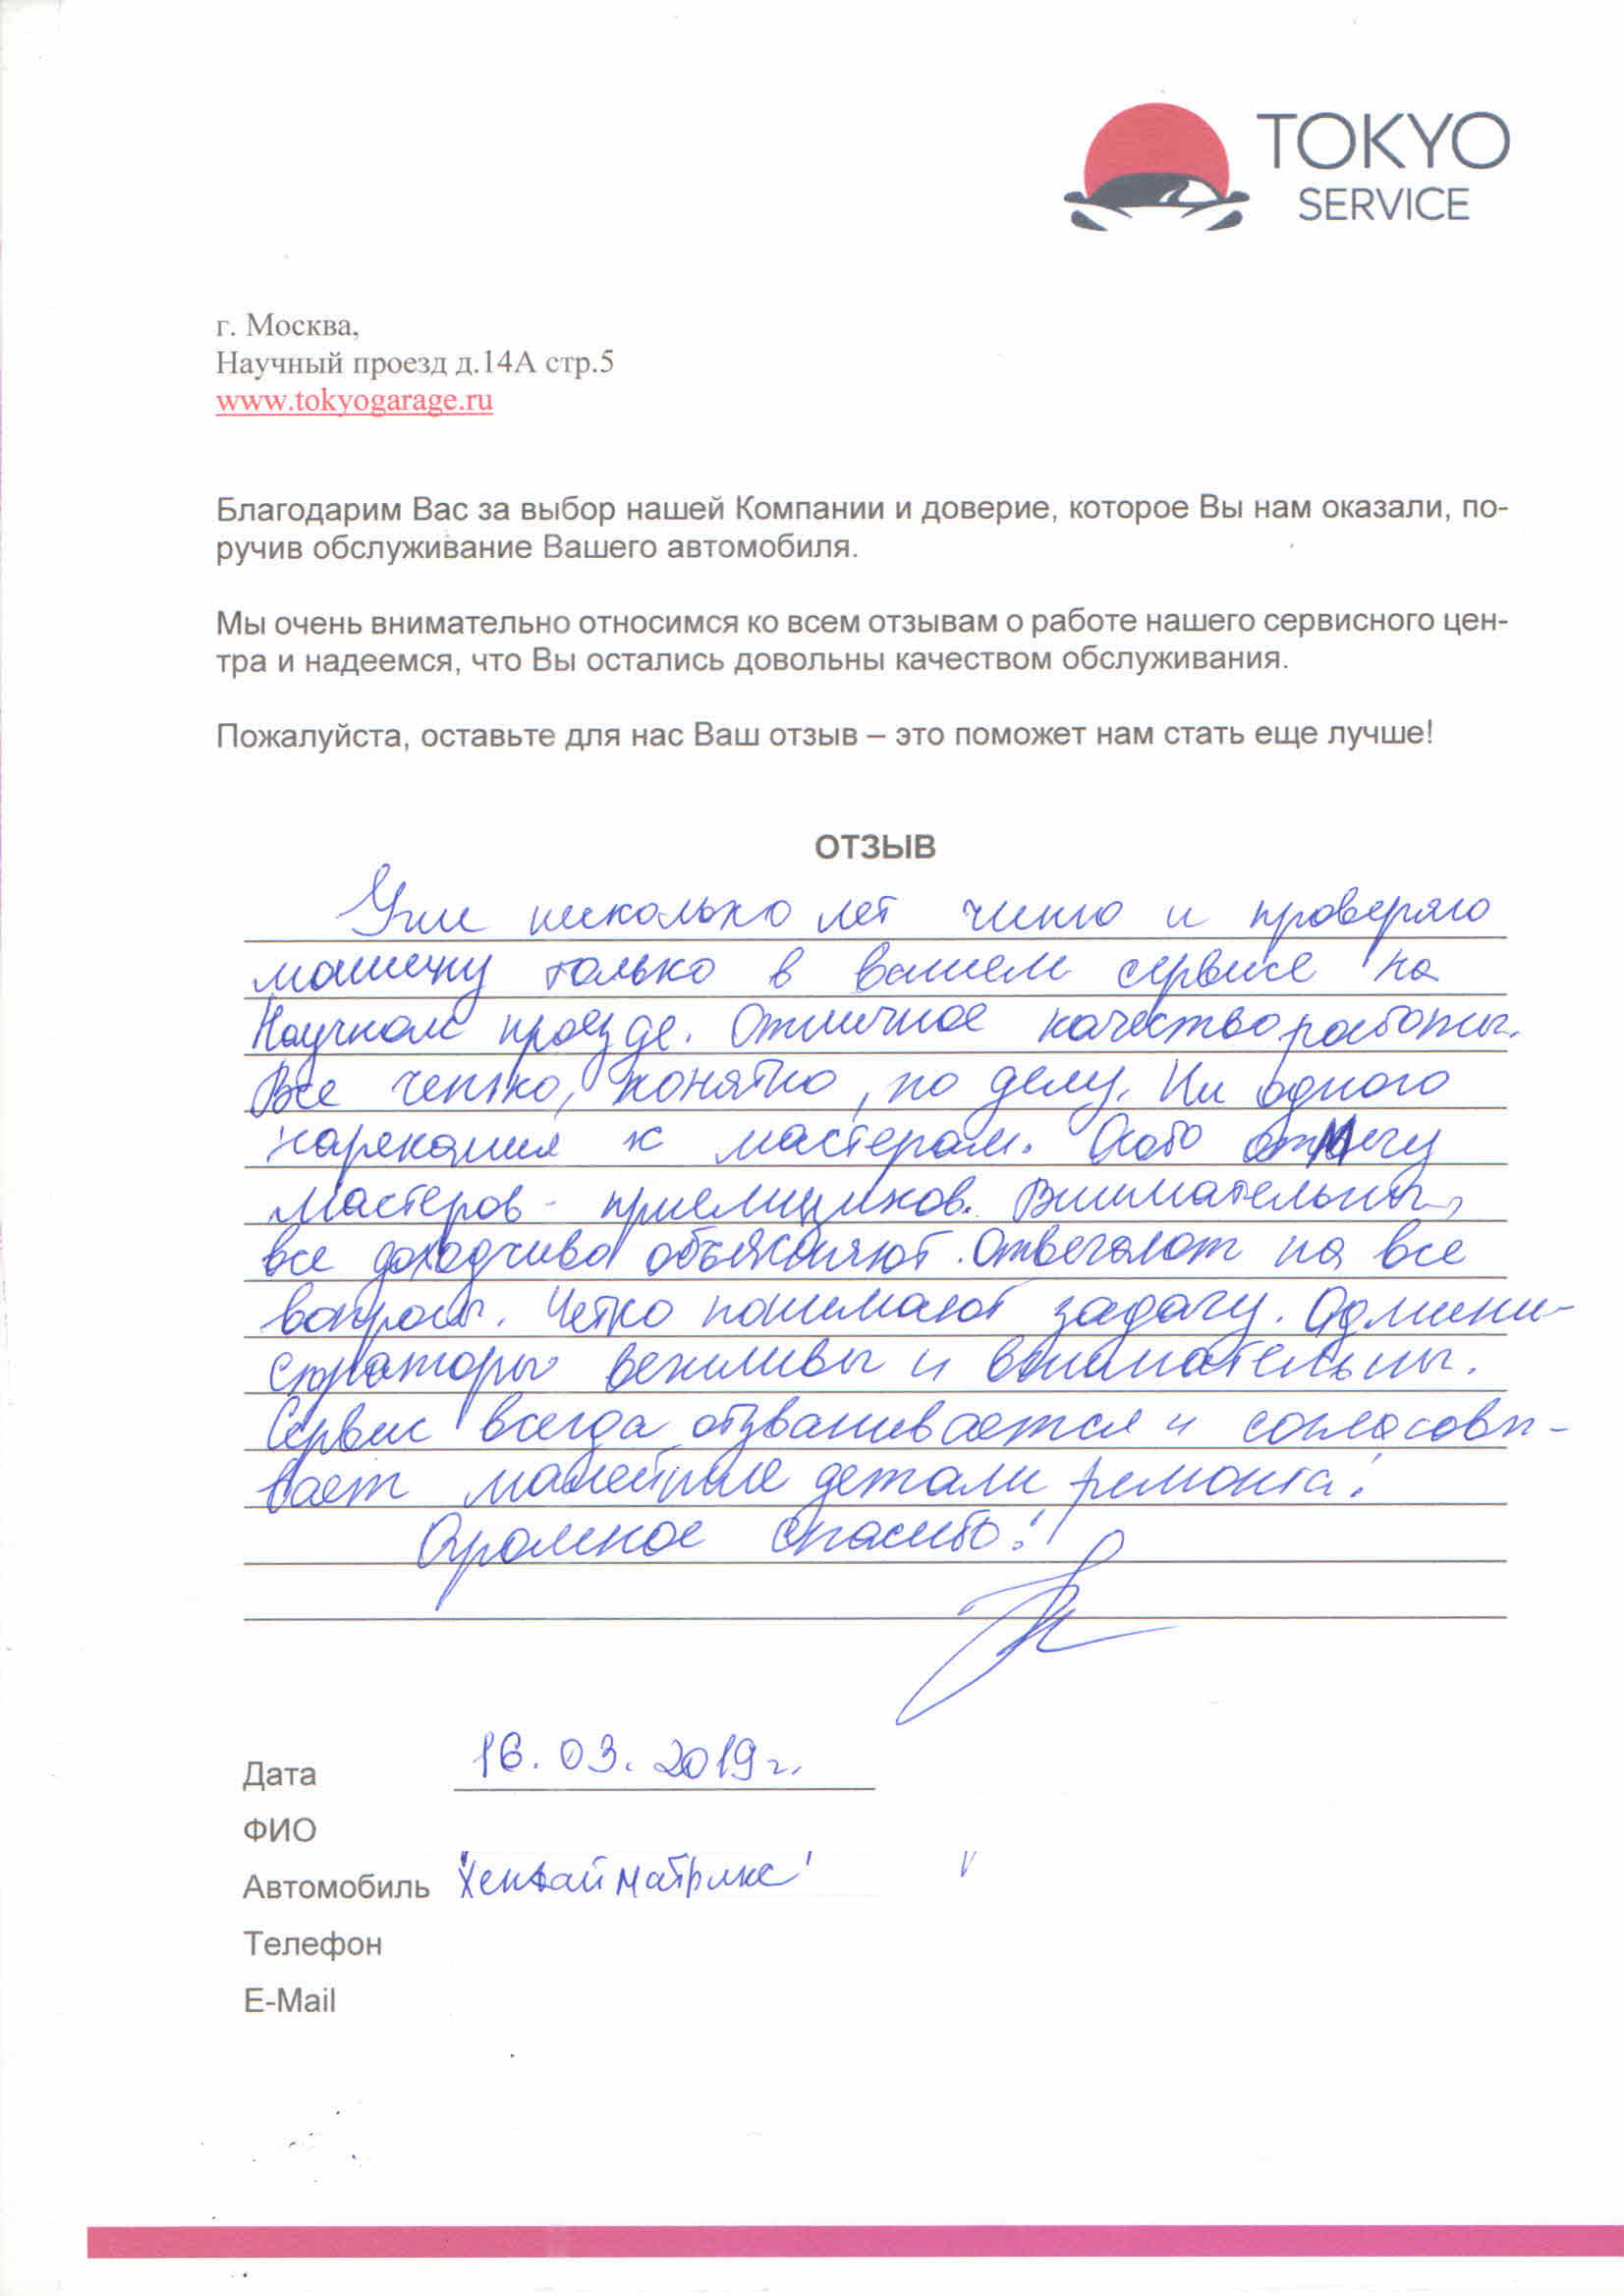 TOKYO
SERVICE
г. Москва,
Научный проезд д.14А стр.5
www.tokyogarage.ru
Благодарим Вас за выбор нашей Компании и доверие, которое Вы нам оказали, по-
ручив обслуживание Вашего автомобиля.
Мы очень внимательно относимся ко всем отзывам о работе нашего сервисного цен-
тра и надеемся, что Вы остались довольны качеством обслуживания.
Пожалуйста, оставьте для нас Ваш отзыв – это поможет нам стать еще лучше!
ОТЗЫВ
Уже несколько лет чиню и проверяю
машину только в вашем сервисе на
Научном проезде. Отличное качество работы.
Все четко, понятно, по делу. Ни одного
нарекания к мастерам. Особо отмечу
мастеров-приемщиков. Внимательны,
все доходчиво объясняют. Отвечают на все
вопросы. Четко понимают задачу. Админи-
страторы вежливы и внимательны.
Сервис всегда отзванивается и согласовы-
вает малейшие детали ремонта!
Огромное спасибо!
Дата 16.03.2019г.
ФИО
Автомобиль "Хендай матрикс"
Телефон
E-Mail